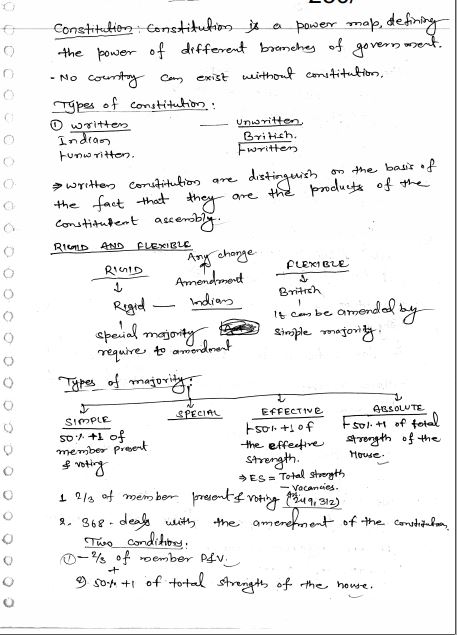 Constitution: Constitution is a power map, defining
the power of different branches of government.
- No country can exist without constitution.
Types of constitution:
① written — unwritten
Indian British.
+unwritten. +written
⇒ written constitution are distinguish on the basis of
the fact that they are the products of the
constituent assembly.
RIGID AND FLEXIBLE
Any change
RIGID Amendment FLEXIBLE
↓ ↓
Rigid — Indian British
special majority It can be amended by
require to amendment simple majority.
Types of majority:
SIMPLE SPECIAL EFFECTIVE ABSOLUTE
50% +1 of +50% +1 of +50% +1 of total
member present the effective strength of the
& voting strength. House.
⇒ ES = Total strength
- Vacancies.
1 2/3 of member present & voting (249, 312)
2. 368 - deals with the amendment of the constitution.
Two condition:
① - 2/3 of member P&V.
+
2) 50% +1 of total strength of the house.